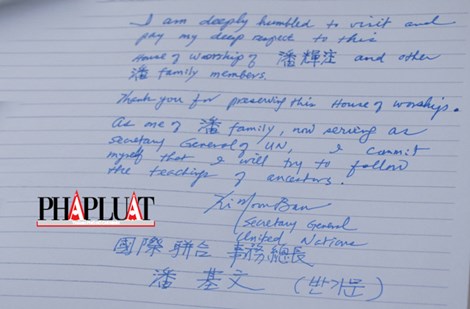 I am deeply humbled to visit and
pay my deep respect to this
House of worship of 潘輝注 and other
潘 family members.
Thank you for preserving this House of worship.
As me of 潘 family, now serving as
Secretary General of UN, I commit
myself that I will try to follow
the teachings of ancestors.
PHAPLUAT
Ki Moon Ban
Secretary General
United Nations
國際聯合 事務總長
潘基文 (반기문)